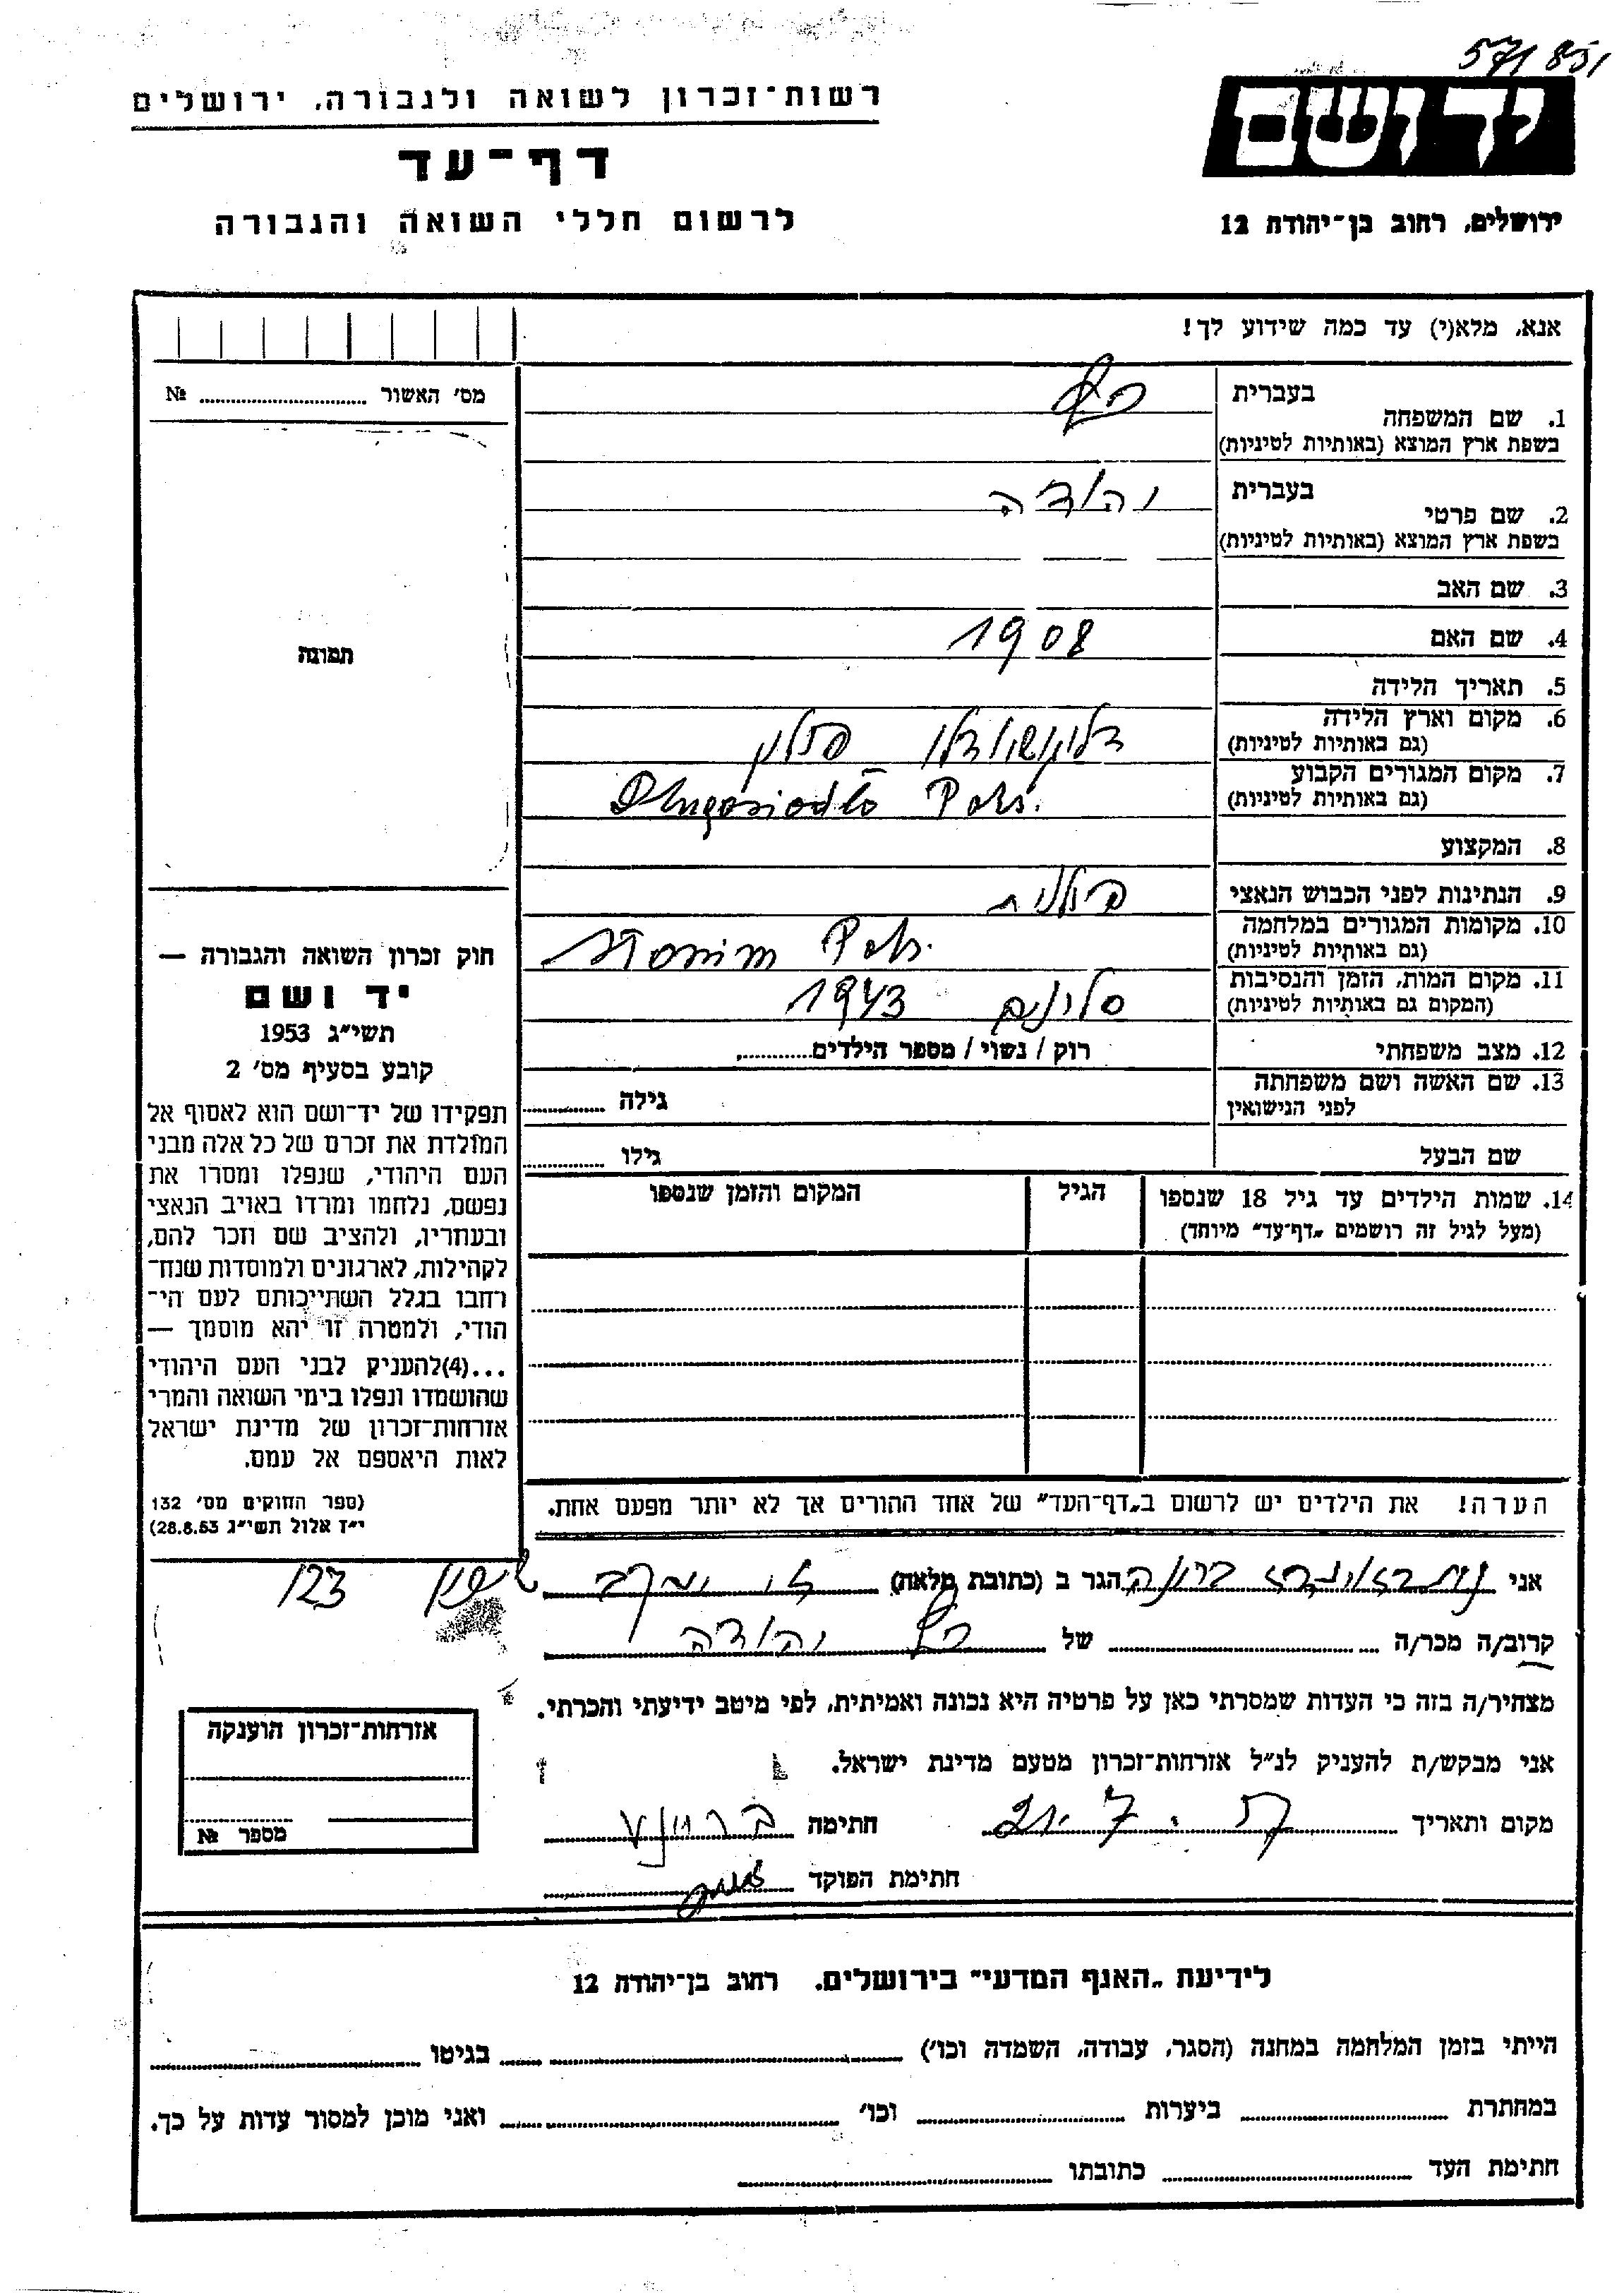 571851
רשות־זכרון לשואה ולגבורה, ירושלים
יד ושם
דף־עד
לרשום חללי השואה והגבורה
ירושלים, רחוב בן־יהודה 12
אנא, מלא(י) עד כמה שידוע לך!
מס׳ האשור ............ №
תמונה
1. שם המשפחה בעברית כץ
בשפת ארץ המוצא (באותיות לטיניות)
2. שם פרטי בעברית יהודה
בשפת ארץ המוצא (באותיות לטיניות)
3. שם האב
4. שם האם 1908
5. תאריך הלידה
6. מקום וארץ הלידה
(גם באותיות לטיניות) דלוגושודלו פולין
7. מקום המגורים הקבוע
(גם באותיות לטיניות) Dlugosiodło Pols.
8. המקצוע
9. הנתינות לפני הכבוש הנאצי פולנית
10. מקומות המגורים במלחמה
(גם באותיות לטיניות) Słonim Pols.
11. מקום המות, הזמן והנסיבות
(המקום גם באותיות לטיניות) סלונים 1943
12. מצב משפחתי רוק / נשוי / מספר הילדים............
13. שם האשה ושם משפחתה
לפני הנישואין גילה ............
שם הבעל גילו ............
14. שמות הילדים עד גיל 18 שנספו הגיל המקום והזמן שנספו
(מעל לגיל זה רושמים „דף־עד״ מיוחד)
הערה! את הילדים יש לרשום ב„דף־העד״ של אחד ההורים אך לא יותר מפעם אחת.
חוק זכרון השואה והגבורה —
יד ושם
תשי״ג 1953
קובע בסעיף מס׳ 2
תפקידו של יד־ושם הוא לאסוף אל
המולדת את זכרם של כל אלה מבני
העם היהודי, שנפלו ומסרו את
נפשם, נלחמו ומרדו באויב הנאצי
ובעוזריו, ולהציב שם וזכר להם,
לקהילות, לארגונים ולמוסדות שנח־
רחבו בגלל השתייכותם לעם הי־
הודי, ולמטרה זו יהא מוסמך —
...(4)להעניק לבני העם היהודי
שהושמדו ונפלו בימי השואה והמרי
אזרחות־זכרון של מדינת ישראל
לאות היאספם אל עמם.
(ספר החוקים מס׳ 132
י״ז אלול תשי״ג 28.8.53)
אני ברונה הגר ב (כתובת מלאה) 123
קרוב/ה מכר/ה ............ של כץ יהודה
מצהיר/ה בזה כי העדות שמסרתי כאן על פרטיה היא נכונה ואמיתית, לפי מיטב ידיעתי והכרתי.
אני מבקש/ת להעניק לנ״ל אזרחות־זכרון מטעם מדינת ישראל.
מקום ותאריך חתימה
חתימת הפוקד
אזרחות־זכרון הוענקה
מספר №
לידיעת „האגף המדעי״ בירושלים, רחוב בן־יהודה 12
הייתי בזמן המלחמה במחנה (הסגר, עבודה, השמדה וכו׳) ............ בגיטו ............
במחתרת ............ ביערות ............ וכו׳ ............ ואני מוכן למסור עדות על כך.
חתימת העד ............ כתובתו ............